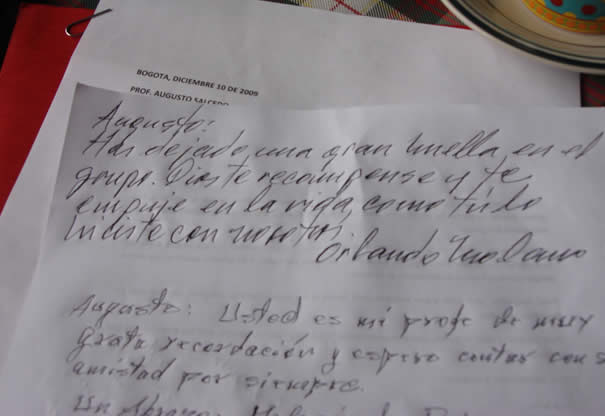 BOGOTA, DICIEMBRE 10 DE 2009
PROF. AUGUSTO SALCEDO
Augusto:
Has dejado una gran huella en el
grupo. Dios te recompense y te
empuje en la vida, como tú lo
hiciste con nosotros
Orlando Molano
Augusto: Usted es mi profe de muy
grata recordación y espero contar con s
amistad por siempre.
Un Abrazo,